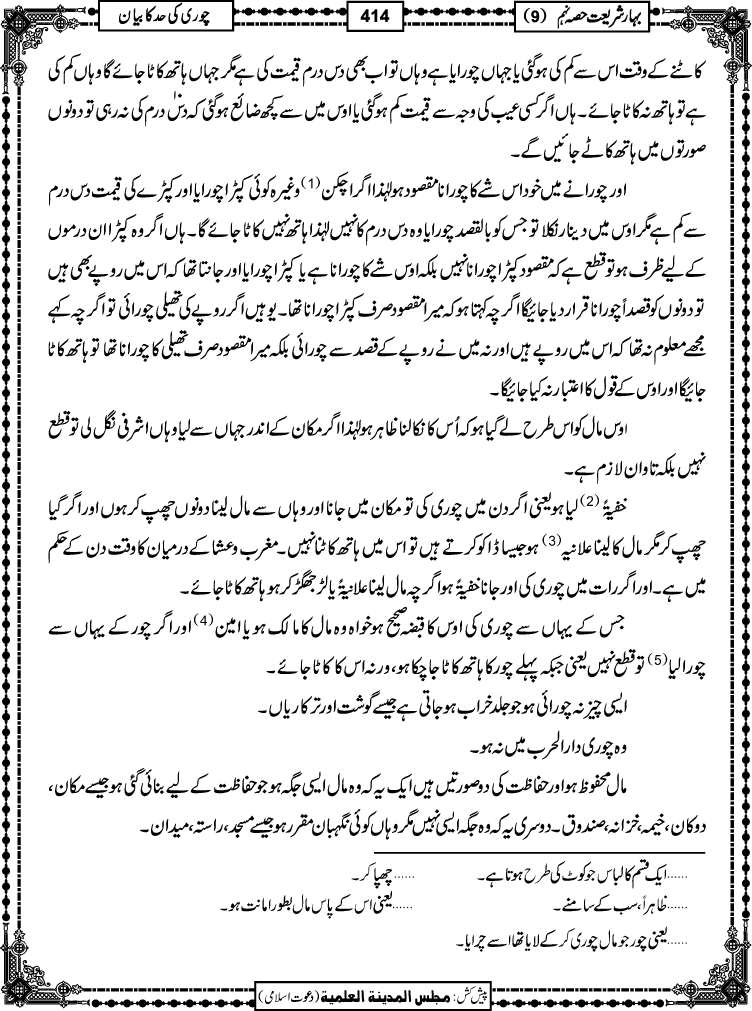 بہار شریعت حصہ نہم (9)
414
چوری کی حد کا بیان
کاٹنے کے وقت اس سے کم کی ہوگئی یا جہاں چورایا ہے وہاں تو اب بھی دس درم قیمت کی ہے مگر جہاں ہاتھ کاٹا جائے گا وہاں کم کی
ہے تو ہاتھ نہ کاٹا جائے۔ ہاں اگر کسی عیب کی وجہ سے قیمت کم ہوگئی یا اوس میں سے کچھ ضائع ہوگئی کہ دس درم کی نہ رہی تو دونوں
صورتوں میں ہاتھ کاٹے جائیں گے۔
اور چورانے میں خود اس شے کا چورانا مقصود ہو لہٰذا اگر اچکن (1) وغیرہ کوئی کپڑا چورایا اور کپڑے کی قیمت دس درم
سے کم ہے مگر اوس میں دینار نکلا تو جس کو بالقصد چورایا وہ دس درم کا نہیں لہٰذا ہاتھ نہیں کاٹا جائے گا۔ ہاں اگر وہ کپڑا ان درموں
کے لیے ظرف ہو تو قطع ہے کہ مقصود کپڑا چورانا نہیں بلکہ اوس شے کا چورانا ہے یا کپڑا چورایا اور جانتا تھا کہ اس میں روپے بھی ہیں
تو دونوں کو قصداً چورانا قرار دیا جائیگا اگرچہ کہتا ہو کہ میرا مقصود صرف کپڑا چورانا تھا۔ یوہیں اگر روپے کی تھیلی چورائی تو اگرچہ کہے
مجھے معلوم نہ تھا کہ اس میں روپے ہیں اور نہ میں نے روپے کے قصد سے چورائی بلکہ میرا مقصود صرف تھیلی کا چورانا تھا تو ہاتھ کاٹا
جائیگا اور اوس کے قول کا اعتبار نہ کیا جائیگا۔
اوس مال کو اس طرح لے گیا ہو کہ اُس کا نکالنا ظاہر ہو لہٰذا اگر مکان کے اندر جہاں سے لیا وہاں اشرفی نگل لی تو قطع
نہیں بلکہ تاوان لازم ہے۔
خفیۃً (2) لیا ہو یعنی اگر دن میں چوری کی تو مکان میں جانا اور وہاں سے مال لینا دونوں چھپ کر ہوں اور اگر گیا
چھپ کر مگر مال کا لینا علانیہ (3) ہو جیسا ڈاکو کرتے ہیں تو اس میں ہاتھ کاٹنا نہیں۔ مغرب و عشا کے درمیان کا وقت دن کے حکم
میں ہے۔ اور اگر رات میں چوری کی اور جانا خفیۃً ہو اگرچہ مال لینا علانیۃً یا لڑ جھگڑ کر ہو ہاتھ کاٹا جائے۔
جس کے یہاں سے چوری کی اوس کا قبضہ صحیح ہو خواہ وہ مال کا مالک ہو یا امین (4) اور اگر چور کے یہاں سے
چورا لیا (5) تو قطع نہیں یعنی جبکہ پہلے چور کا ہاتھ کاٹا جا چکا ہو، ورنہ اس کا کاٹا جائے۔
ایسی چیز نہ چورائی ہو جو جلد خراب ہو جاتی ہے جیسے گوشت اور ترکاریاں۔
وہ چوری دارالحرب میں نہ ہو۔
مال محفوظ ہو اور حفاظت کی دو صورتیں ہیں ایک یہ کہ وہ مال ایسی جگہ ہو جو حفاظت کے لیے بنائی گئی ہو جیسے مکان،
دوکان، خیمہ، خزانہ، صندوق۔ دوسری یہ کہ وہ جگہ ایسی نہیں مگر وہاں کوئی نگہبان مقرر ہو جیسے مسجد، راستہ، میدان۔
......ایک قسم کا لباس جو کوٹ کی طرح ہوتا ہے۔ ......چھپا کر۔
......ظاہراً، سب کے سامنے۔ ......یعنی اس کے پاس مال بطور امانت ہو۔
......یعنی چور جو مال چوری کر کے لایا تھا اسے چرایا۔
پیش کش: مجلس المدینۃ العلمیۃ (دعوت اسلامی)